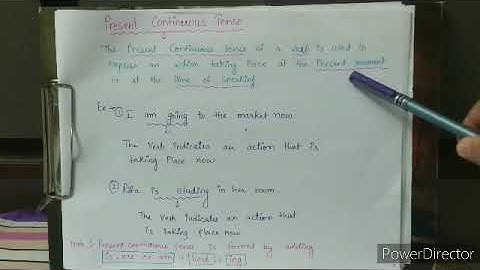 Present Continuous Tense
The Present Continuous tense of a verb is used to
express an action taking place at the present moment
or at the time of speaking
Ex → ① I am going to the market now
The Verb indicates an action that is
taking place now
② Rita is studying in her room.
The Verb indicates an action that
is taking place now
Present continuous tense is formed by adding
is, are or am + verb + ing
PowerDirector